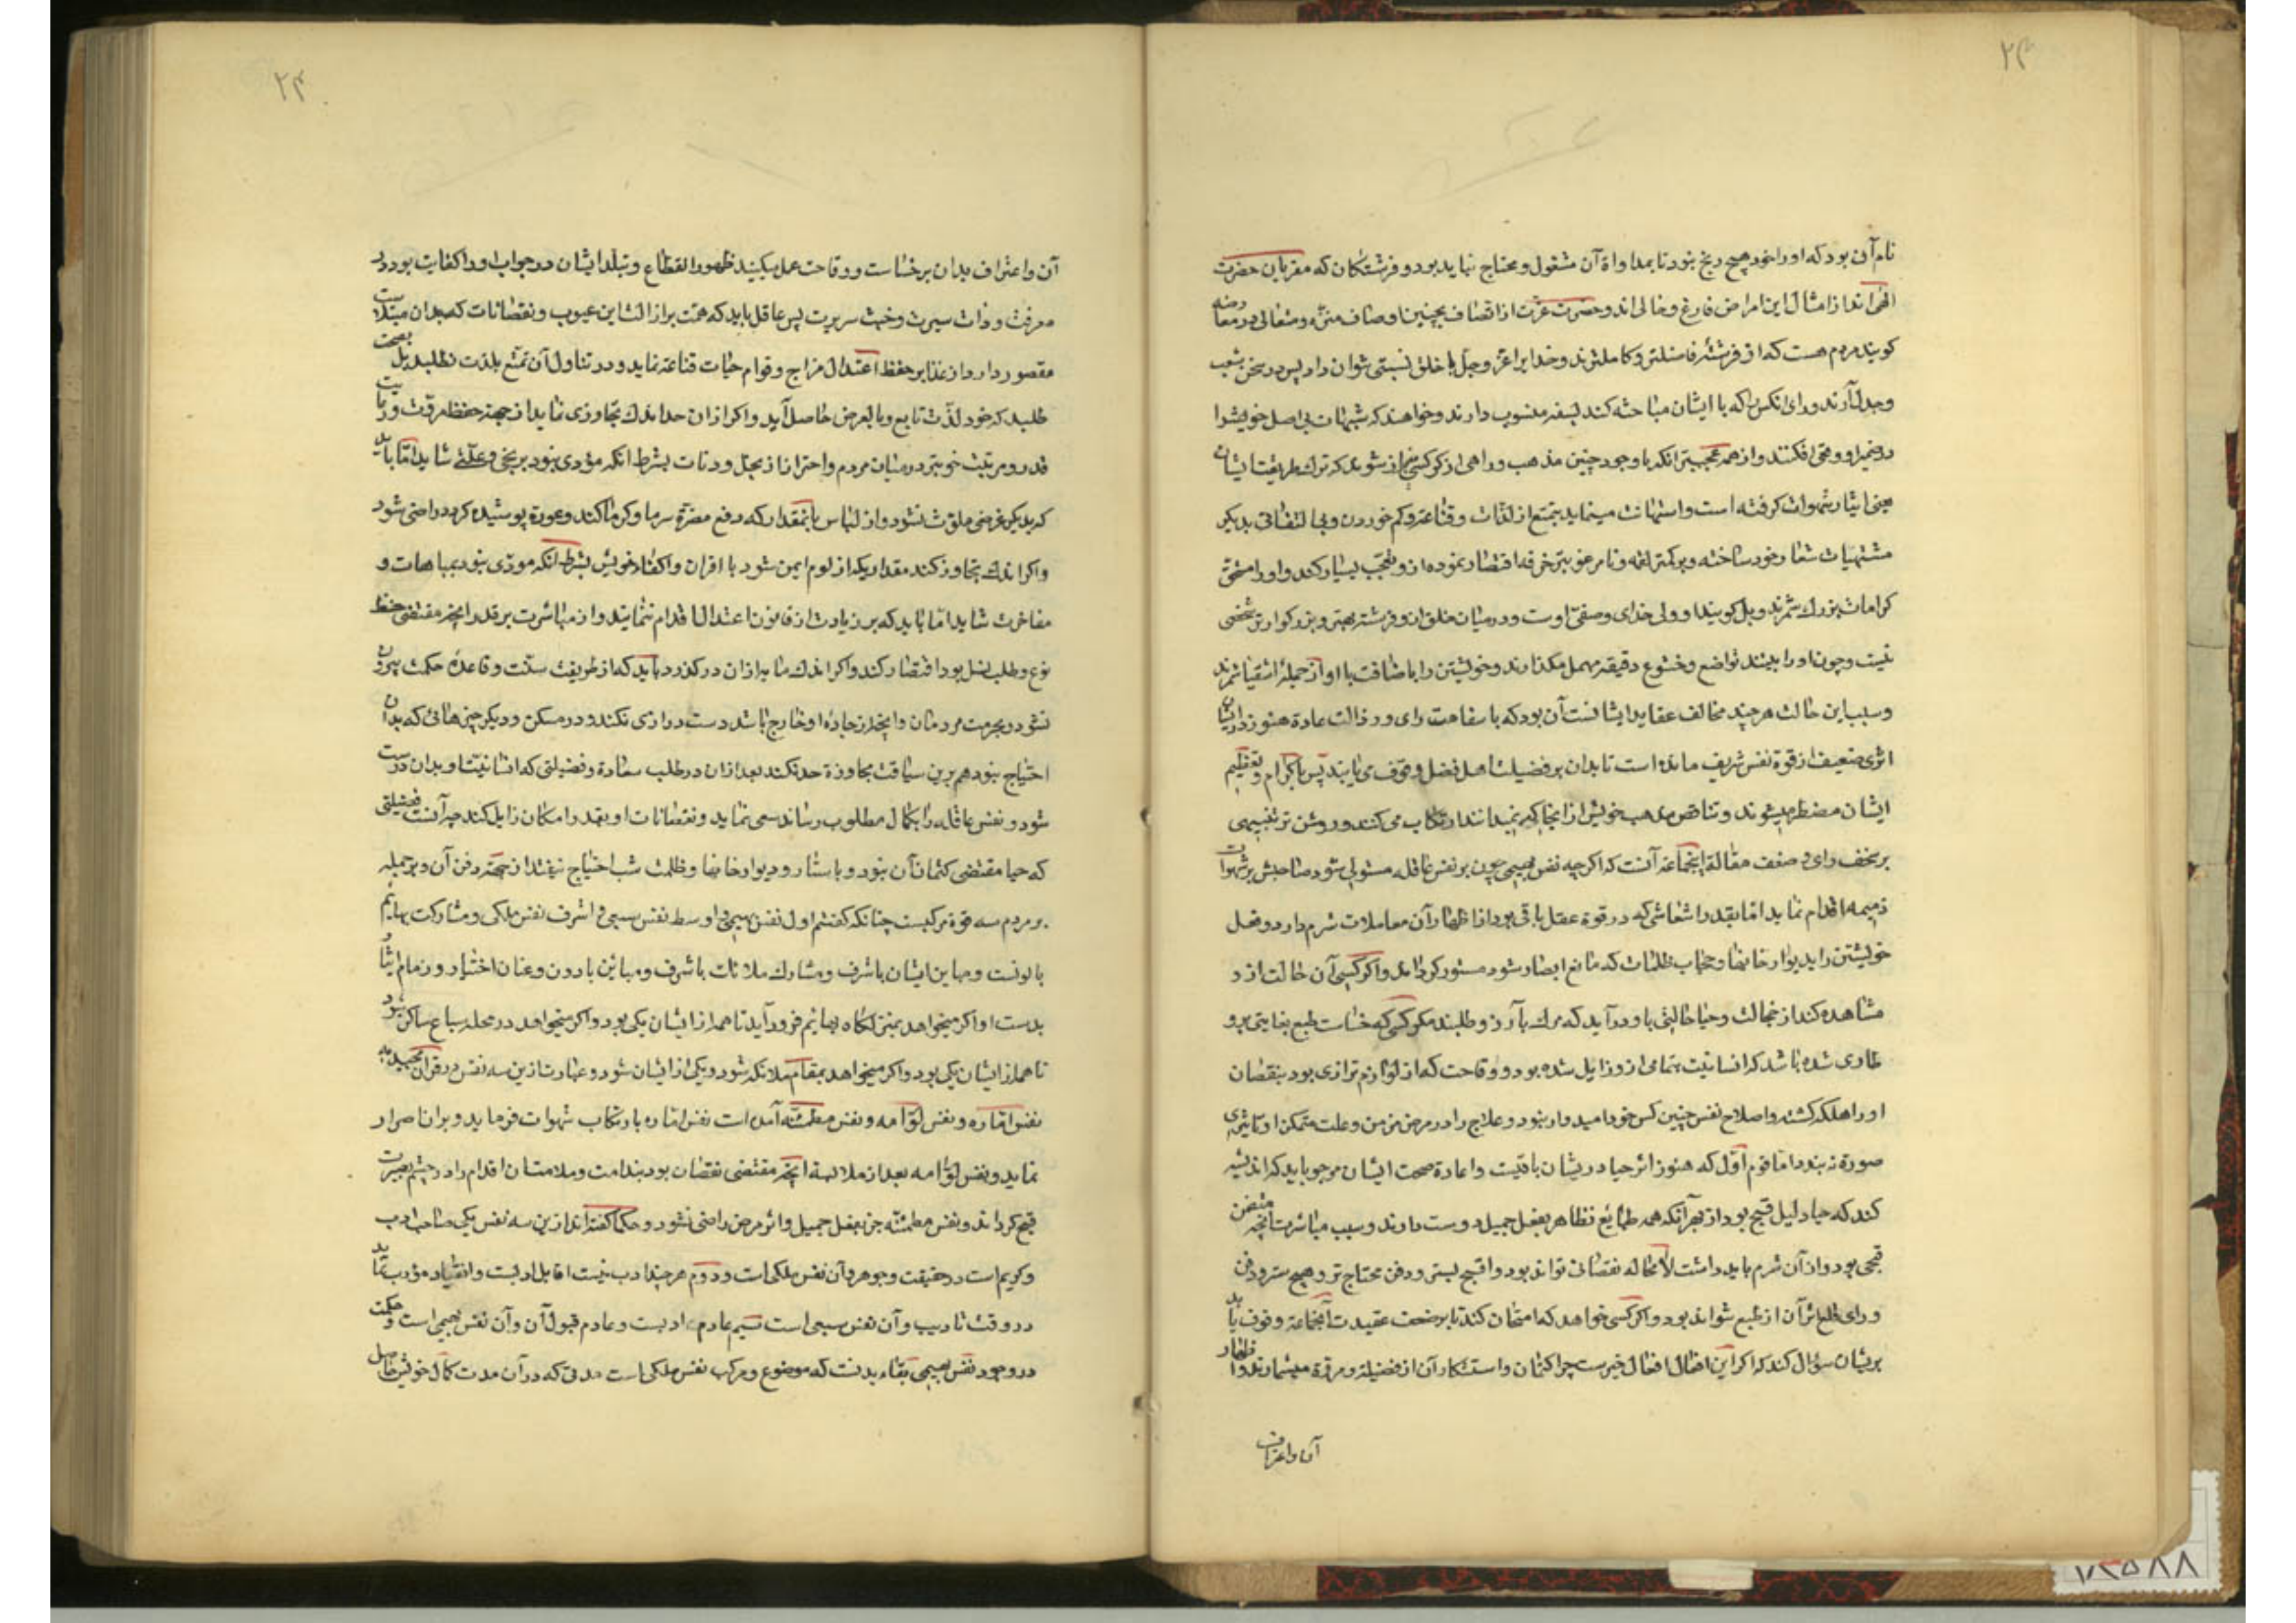 ۲۳
نام آن بود که او را خود هیچ رنج نبود تا بمداواة آن مشغول و محتاج نباید بود و فرشتکان که مقربان حضرت
الهی‌اند از امثال این امراض فارغ و خالی‌اند و حضرت عزت از اتصاف بچنین اوصاف منزه و متعالی در معارضه
کویند مردم هست که از فرشته فاضلتر و کاملترند و خدایرا عز و جل با خلق نسبتی نتوان داد پس در سخن شعب
و جدل آرند و رای انکس را که با ایشان مباحثه کند بسفه منسوب دارند و خواهند که شبهات بی اصل خویش را
در ضمیر او وقعی افکنند و از همه عجیبتر انکه با وجود چنین مذهب و راهی از کو کسی که ترک طریقت ایشان
یعنی ایثار شهوات کرفته است و استهانت مینماید بتمتع از لذات و قناعة و کم خوردن و بی التفاتی بدیکر
مشتهیات شعار خود ساخته و بر کمتر لقمه و نامرغوبتر خرقه اقتصار نموده ازو تعجب بسیار کنند و او را مستحق
کرامات بزرک شمرند و بل کویند او ولی خدای و صفی اوست و در میان خلق ازو فرشته بهتر و بزرکوارتر شخصی
نیست و چون او را بینند تواضع و خشوع دقیقه مهمل مکذارند و خویشتن را باضافت با او از جمله اشقیا شمرند
و سبب این حالت هر چند مخالف عقاید ایشانست آن بود که با سفاهت رای و رذالت عادة هنوز در ایشان
اثری ضعیف از قوة نفس شریف مانده است تا بدان بر فضیلت اهل فضل وقوف می‌یابند پس باکرام و تعظیم
ایشان مضطر میشوند و تناقض مذهب خویش از آنجا که نمیدانند ارتکاب می‌کنند و روشن تر تنبیهی
بر سخف رای و ضعف مقالة این جماعة آنست که اکر چه نفس بهیمی چون بر نفس عاقله مستولی شود صاحبش بر شهوات
ذمیمه اقدام نماید اما بقدر انتعاشی که در قوة عقل باقی بود از اظهار آن معاملات شرم دارد و فعل
خویشتن را بدیوار خانها و حجاب ظلمات که مانع ابصار شود مستور کرداند و اکر کسی آن حالت ازو
مشاهده کند از خجالت و حیا حالتی باو در آید که مرک بآرزو طلبند مکر کسی که خساست طبع بغایتی برو
طاری شده باشد که انسانیت بتمامی ازو زایل شده بود و وقاحت که از لوازم ترازی بود بنقصان
او را هلکه کشته و اصلاح نفس چنین کس خود امیدوار نبود و علاج را در مرض مزمن و علت متمکن او تاثیری
صورة نبندد اما قوم اول که هنوز اثر حیا در یشان باقیست و اعادة صحت ایشان مرجو باید که اندیشه
کند که حیا دلیل قبیح بود از بهر آنکه همه طبایع تظاهر بفعل جمیل دوست دارند و سبب مباشرت آنچه متضمن
قبحی بود و از آن شرم باید داشت لا محاله نقصانی تواند بود و اقبح لبسی و دفن محتاج تر و هیچ ستر و دفن
ورای قلع اثر آن از طبع نتواند بود و اکر کسی خواهد که امتحان کند تا بر ضعف عقیدت آن جماعة وقوف یابد
بریشان سؤال کند که اکر این افعال افعال خیر ست چرا کتمان و استنکار آن از فضیلة و مروة میشمارند و اظهار
آن و اعتراف
۲۴
آن و اعتراف بدان بر خساست و وقاحت عمل میکنند ظهور انقطاع و تبلد ایشان در جواب او را کفایت بود در
معرفت رذات سیرت و خبث سریرت پس عاقل باید که همت بر ازالت این عیوب و نقصانات که بدان مبتلاست
مقصور دارد از غذا بر حفظ اعتدال مزاج و قوام حیات قناعة نماید و در تناول آن تمتع بلذت نطلبد بل صحت
طلبد که خود لذت تابع و بالعرض حاصل آید و اکر از ان حد اندک تجاوزی نماید از جهة حفظ مروت و رتبت
قدر و مرتبت خویش در میان مردم و احتراز از بخل و دنائت بشرط انکه مؤدی نبود برنجی و علتی شاید اما باید
که بدیکر غرضی ملوث نشود و از لباس بآنمقدار که دفع مضرة سرما و کرما کند و عورة پوشیده کردد راضی شود
و اکر اندک تجاوز کند مقداریکه از لوم ایمن شود با اقران و اکفاء خویش بشرط انکه مودی نبود بمباهات و
مفاخرت شاید اما باید که بر زیادت از قانون اعتدال اقدام ننماید و از مباشرت بر قدر آنچه مقتضی حفظ
نوع و طلب نسل بود اقتصار کند و اکر اندک مایه ازان در کذرد باید که از طریقت سنت و قاعدة حکمت بیرون
نشود و بحرمت مردمان و آنچه از حاده او خارج باشد دست درازی نکند و در مسکن و دیکر چیزهائی که بدان
احتیاج بود هم برین سیاقت مجاوزة حد نکند بعد ازان در طلب سعادة و فضیلتی که انسانیت او بدان درست
شود و نفس عاقله را بکمال مطلوب رساند سعی نماید و نقصانات او بقدر امکان زایل کند چه آنست فضیلتی
که حیا مقتضی کتمان آن نبود و باستار و دیوار خانها و ظلمت شب احتیاج نیفتد از جهة دفن آن و بر جمله
بر مردم سه قوة مرکبست چنانکه کفتیم اول نفس بهیمی و اوسط نفس سبعی و اشرف نفس ملکی و مشارکت بهایم
بادونست و مباین ایشان باشرف و مشارک ملائکه باشرف و مباین بادون و عنان اختیار و زمام ایثار
بدست او اکر میخواهد بمنزلکاه بهایم فرود آید تا هم از ایشان یکی بود و اکر میخواهد در محله سباع ساکن شود
تا هم از ایشان یکی بود و اکر میخواهد بمقام ملائکه شود و یکی از ایشان شود و عبارت ازین سه نفس در قران مجید به
نفس اماره و نفس لوامه و نفس مطمئنه آمده است نفس اماره بارتکاب شهوات فرماید و بران اصرار
نماید و نفس لوامه بعد از ملابسة آنچه مقتضی نقصان بود بندامت و ملامت ان اقدام را در چشم بصیرت
قبیح کرداند و نفس مطمئنه جز بفعل جمیل و اثر مرضی راضی نشود و حکما کفته‌اند ازین سه نفس یکی صاحب ادب
و کریم است در حقیقت و جوهر و آن نفس ملکی است و دوم هر چند ادب نیست اما قابل ادبست و انقیاد مؤدب نماید
در وقت تادیب و آن نفس سبعی است سیم عادم ادبست و عادم قبول آن و آن نفس بهیمی است و حکمت
در وجود نفس بهیمی بقاء بدنست که موضوع و مرکب نفس ملکی است مدتی که در آن مدت کمال خویش حاصل